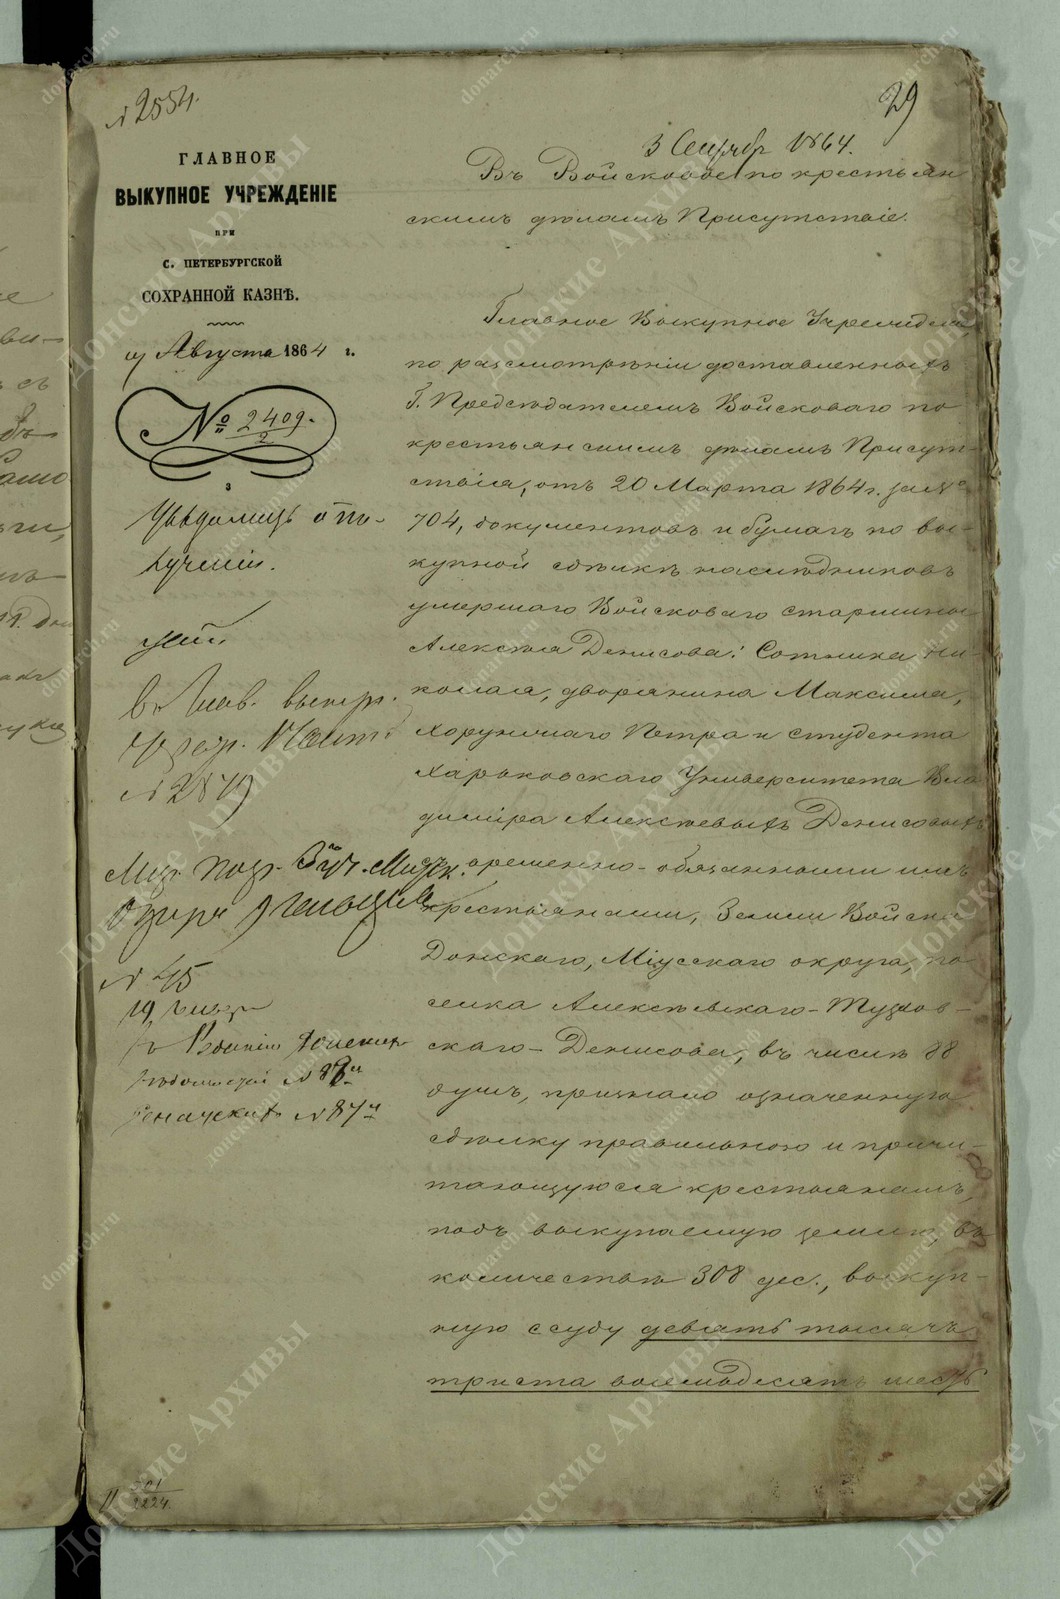 № 2554.
29
ГЛАВНОЕ
ВЫКУПНОЕ УЧРЕЖДЕНІЕ
ПРИ
С. ПЕТЕРБУРГСКОЙ
СОХРАННОЙ КАЗНѢ.
Августа 1864 г.
№ 2409.
2
3
Увѣдомить о по-
лученіи.
№ 2879
№ 45
19
№ 87
3 Сентябр 1864.
Въ Войсковое по крестьян
скимъ дѣламъ Присутствіе.
Главное Выкупное Учрежденіе
по разсмотрѣніи доставленныхъ
Г. Предсѣдателемъ Войсковаго по
крестьянскимъ дѣламъ Присут-
ствія, отъ 20 Марта 1864 г. за №
704, документовъ и бумагъ по вы-
купной сдѣлкѣ наслѣдниковъ
умершаго Войсковаго старшины
Алексѣя Денисова: Сотника Ни-
колая, дворянина Максима,
хорунжаго Петра и студента
Харьковскаго Университета Вла
диміра Алексѣевыхъ Денисовыхъ
съ временно-обязанными имъ
крестьянами, Земли Войска
Донскаго, Міусскаго округа, по
селка Алексѣевскаго-Тузлов-
скаго-Денисова, въ числѣ 88
душъ, признало означенную
сдѣлку правильною и причи-
тающуюся крестьянамъ,
подъ выкупаемую землю, въ
количествѣ 308 дес., выкуп-
ную ссуду девять тысячъ
триста восемьдесятъ шесть
501
2224